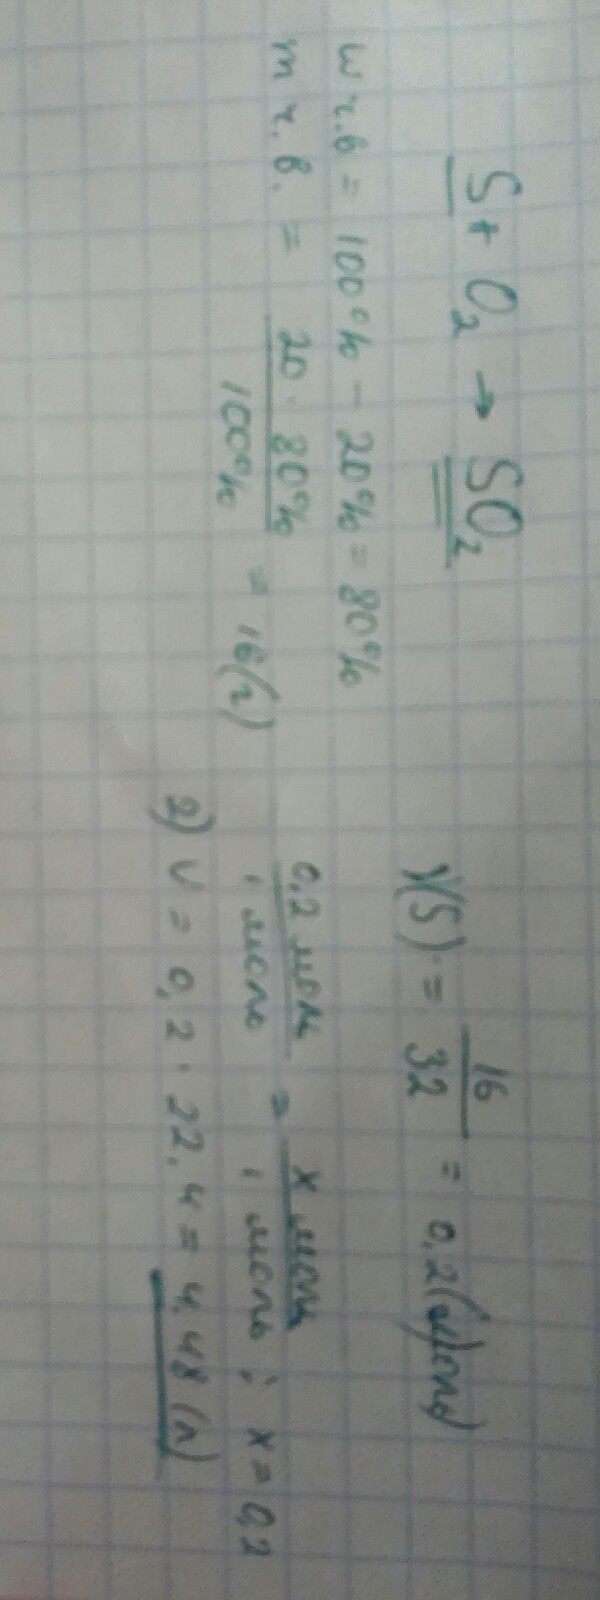 S + O₂ → SO₂
w ч.в = 100% - 20% = 80%
m ч.в. = 20 · 80% / 100% = 16(г)
ν(S) = 16 / 32 = 0,2(моль)
0,2 моль / 1 моль = x моль / 1 моль ; x = 0,2
2) V = 0,2 · 22,4 = 4,48 (л)